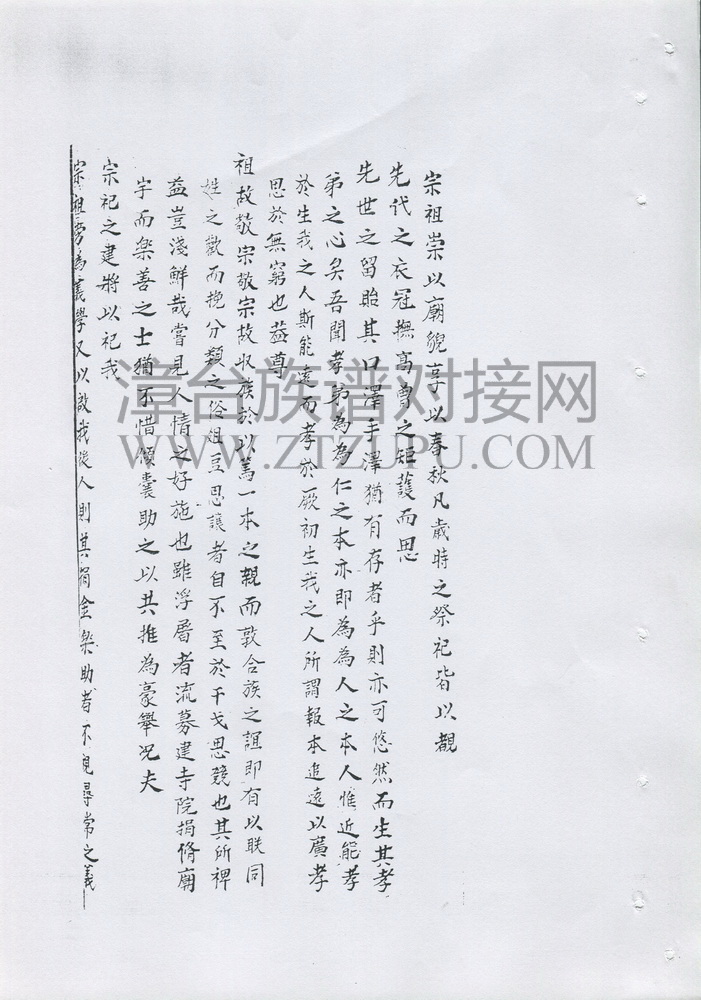 宗祖崇以廟貌享以春秋凡歲時之祭祀皆以覩
先代之衣冠撫高曾之矩蒦而思
先世之留貽其口澤手澤猶有存者乎則亦可悠然而生其孝
弟之心矣吾聞孝弟為為仁之本亦即為為人之本人惟近能孝
於生我之人斯能遠而孝於厥初生我之人所謂報本追遠以廣孝
思於無窮也蓋尊
祖故敬宗敬宗故收族於以篤一本之親而敦合族之誼即有以联同
姓之歡而挽分類之俗俎豆思讓者自不至於干戈思競也其所裨
益豈淺鮮哉嘗見人情之好施也雖浮屠者流募建寺院捐脩廟
宇而樂善之士猶不惜傾囊助之以共推為豪舉况夫
宗祀之建將以祀我
宗祖旁為義學又以啟我後人則其捐金樂助者不視尋常之義
漳台族谱对接网
WWW.ZTZUPU.COM